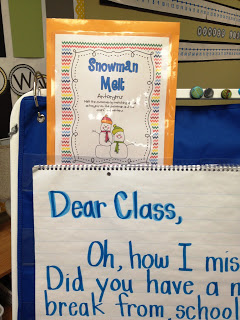 Snowman
Melt
Antonyms
Dear Class,
Oh, how I mis
Did you have a n
break from school